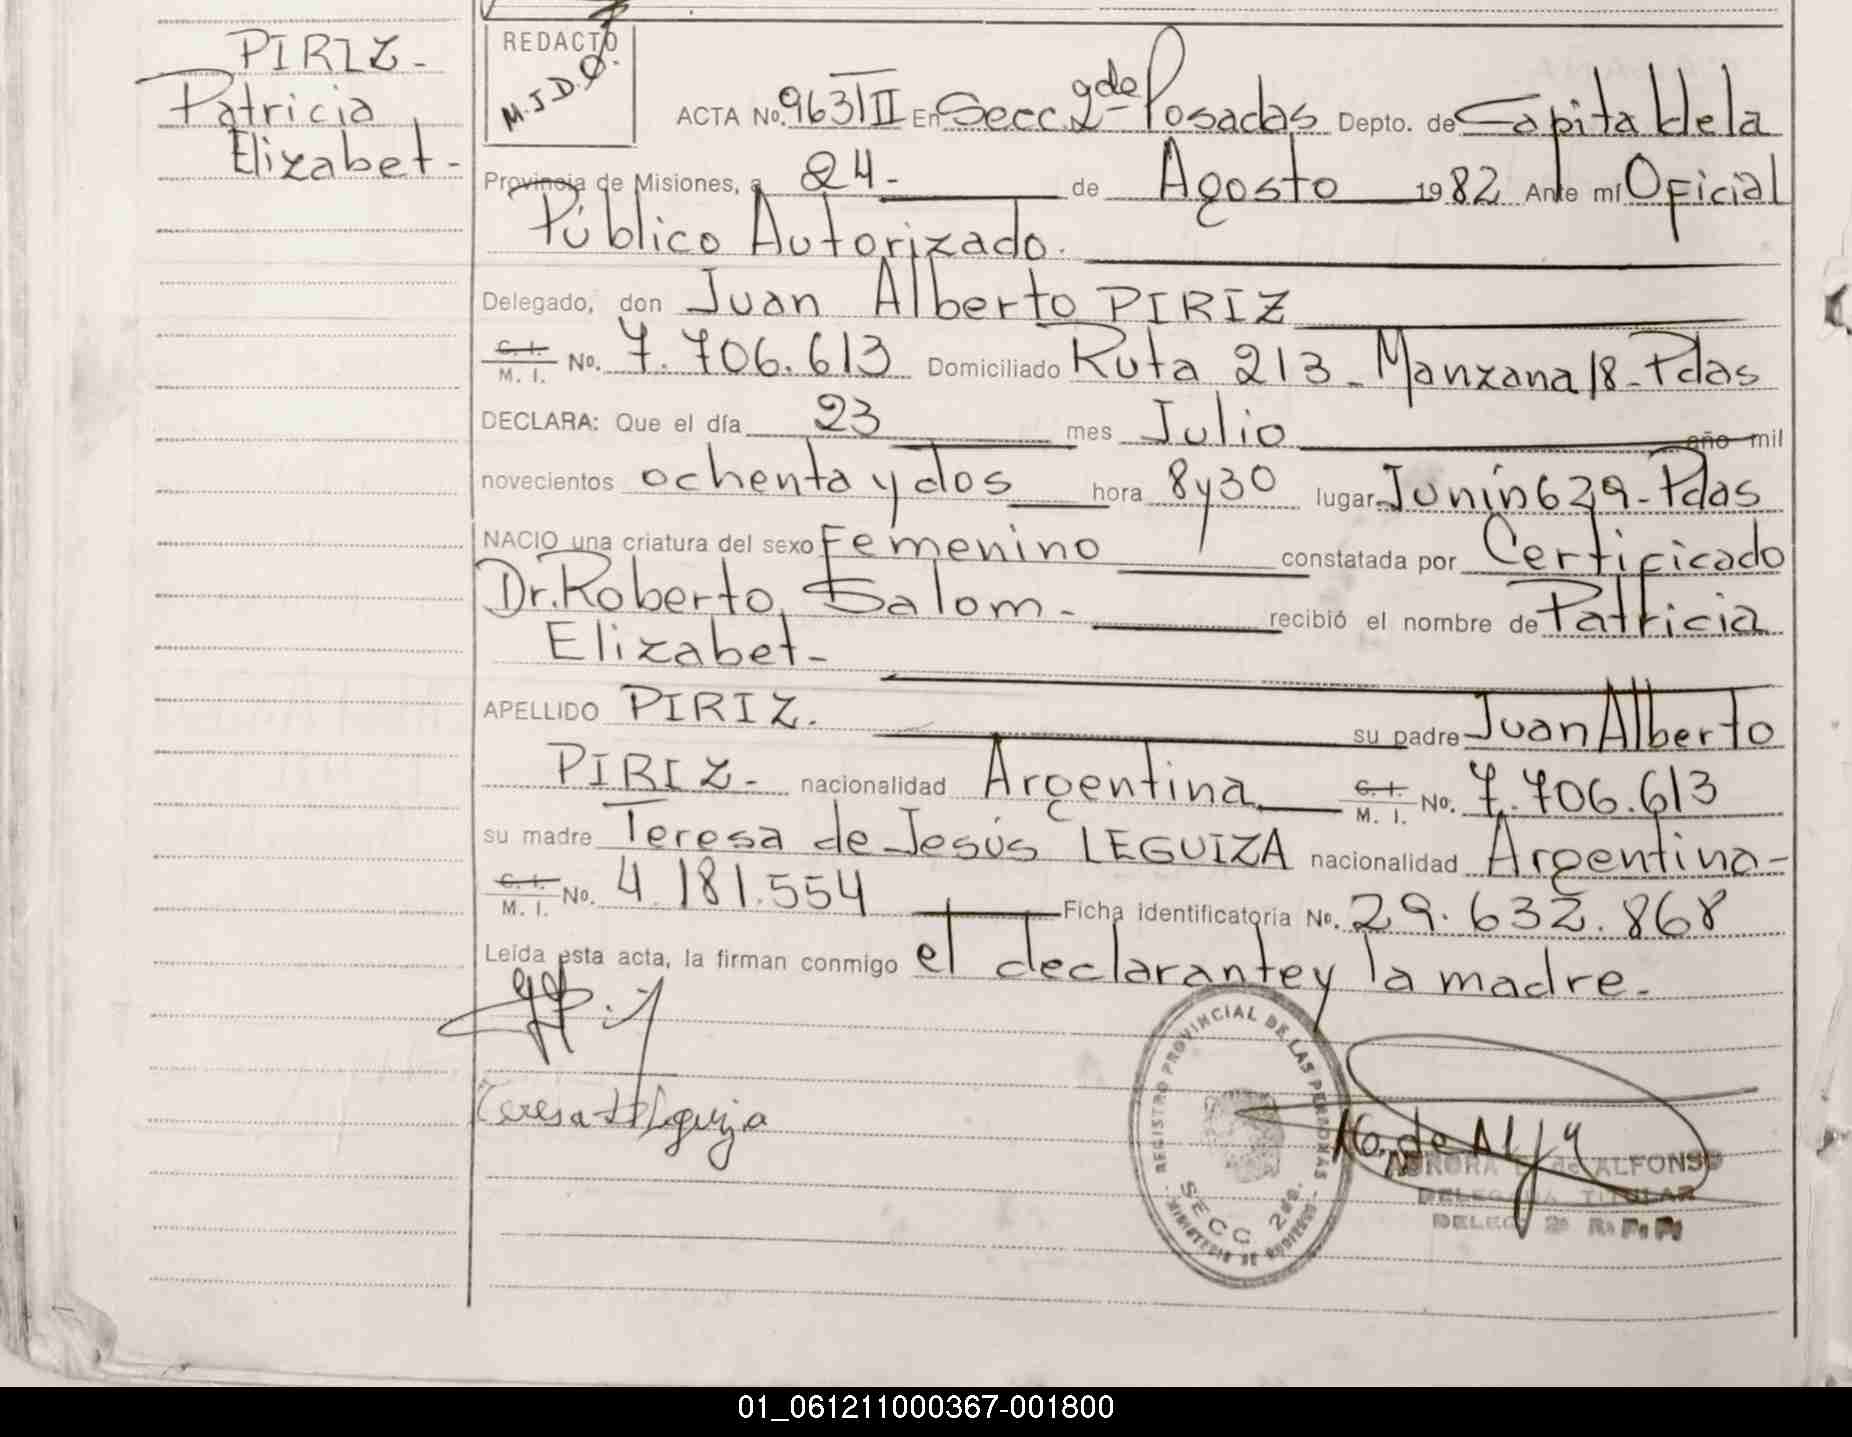 PIRIZ-
Patricia
Elizabet-
REDACTO
M.J.D.O.
ACTA No. 963TII En Secc. 2da Posadas Depto. de Capital de la
Provincia de Misiones, a 24- de Agosto 1982 Ante mí Oficial
Público Autorizado.
Delegado, don Juan Alberto PIRIZ
C. I. M. I. No. 7.706.613 Domiciliado Ruta 213-Manzana 18-Pdas
DECLARA: Que el día 23 mes Julio año mil
novecientos ochenta y dos hora 8y30 lugar Junín 629-Pdas
NACIO una criatura del sexo Femenino constatada por Certificado
Dr. Roberto Salom- recibió el nombre de Patricia
Elizabet-
APELLIDO PIRIZ. su padre Juan Alberto
PIRIZ- nacionalidad Argentina C. I. M. I. No. 7.706.613
su madre Teresa de Jesús LEGUIZA nacionalidad Argentina-
C. I. M. I. No. 4.181.554 Ficha identificatoria No. 29.632.868
Leída esta acta, la firman conmigo el declarante y la madre.
REGISTRO PROVINCIAL DE LAS PERSONAS
SECC 2da.
MINISTERIO DE GOBIERNO
Teresa Leguiza
de ALFONSO
DELEGADA TITULAR
DELEG 2a R.P.P.
01_061211000367-001800